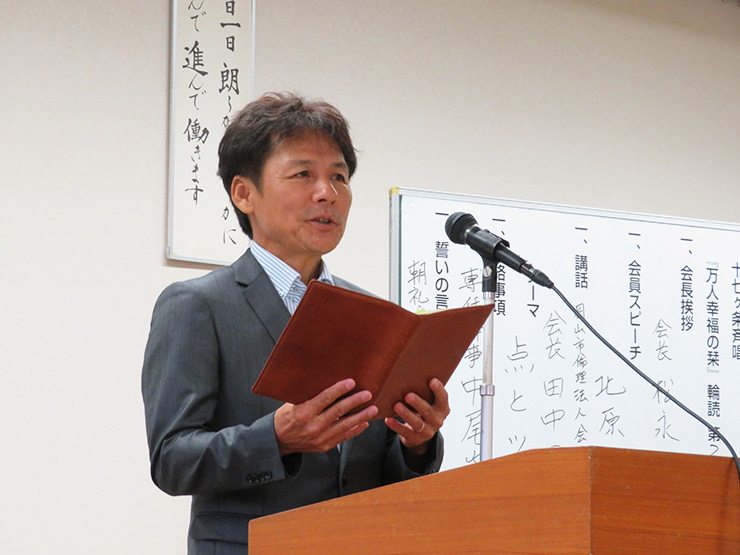 日一日 朗らかに
んで 進んで 働きます
十七ケ条斉唱
『万人幸福の栞』 輪読 第
一、会長挨拶
会長 松永
一、会員スピーチ
北原
一、講話
山市倫理法人会
会長 田中
点とツ
絡事項
専任幹事 中尾
一、誓いの言
朝礼